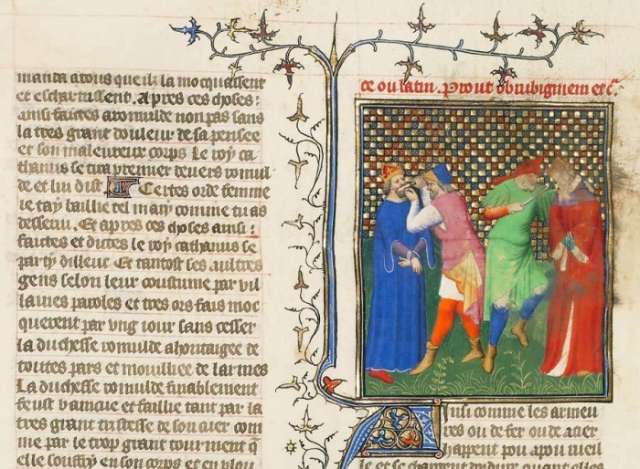 manda a tous que il la mocquassent
et escharnissent. Apres ces choses
ainsi faictes a romulde non pas sans
la tres grant douleur de sa pensee
et son maleureux corps Le roy ca
thanus se tira premier devers romul
de et lui dist Certes orde femme
ie tay baillie tel mary comme tu as
desseruu. Et apres ces choses ainsi
faictes et dictes le roy cathanus se
party dilleuc Et tantost ses aultres
gens selon leur coustume par vil
laines paroles et tres ors fais moc
querent par ung iour sans cesser
la duchesse romulde ahontaigee de
toutes pars et mouilliee de larmes
La duchesse romulde finablement
feust vaincue et faillie tant par la
tres grant tristesse de son cuer com
me par le trop grant tourment qu
elle souffry en son corps et en plou
ce ou latin. Prout obrubiginem etc.
Ainsi comme les armeu
res ou de fer ou de acier
pou a pou